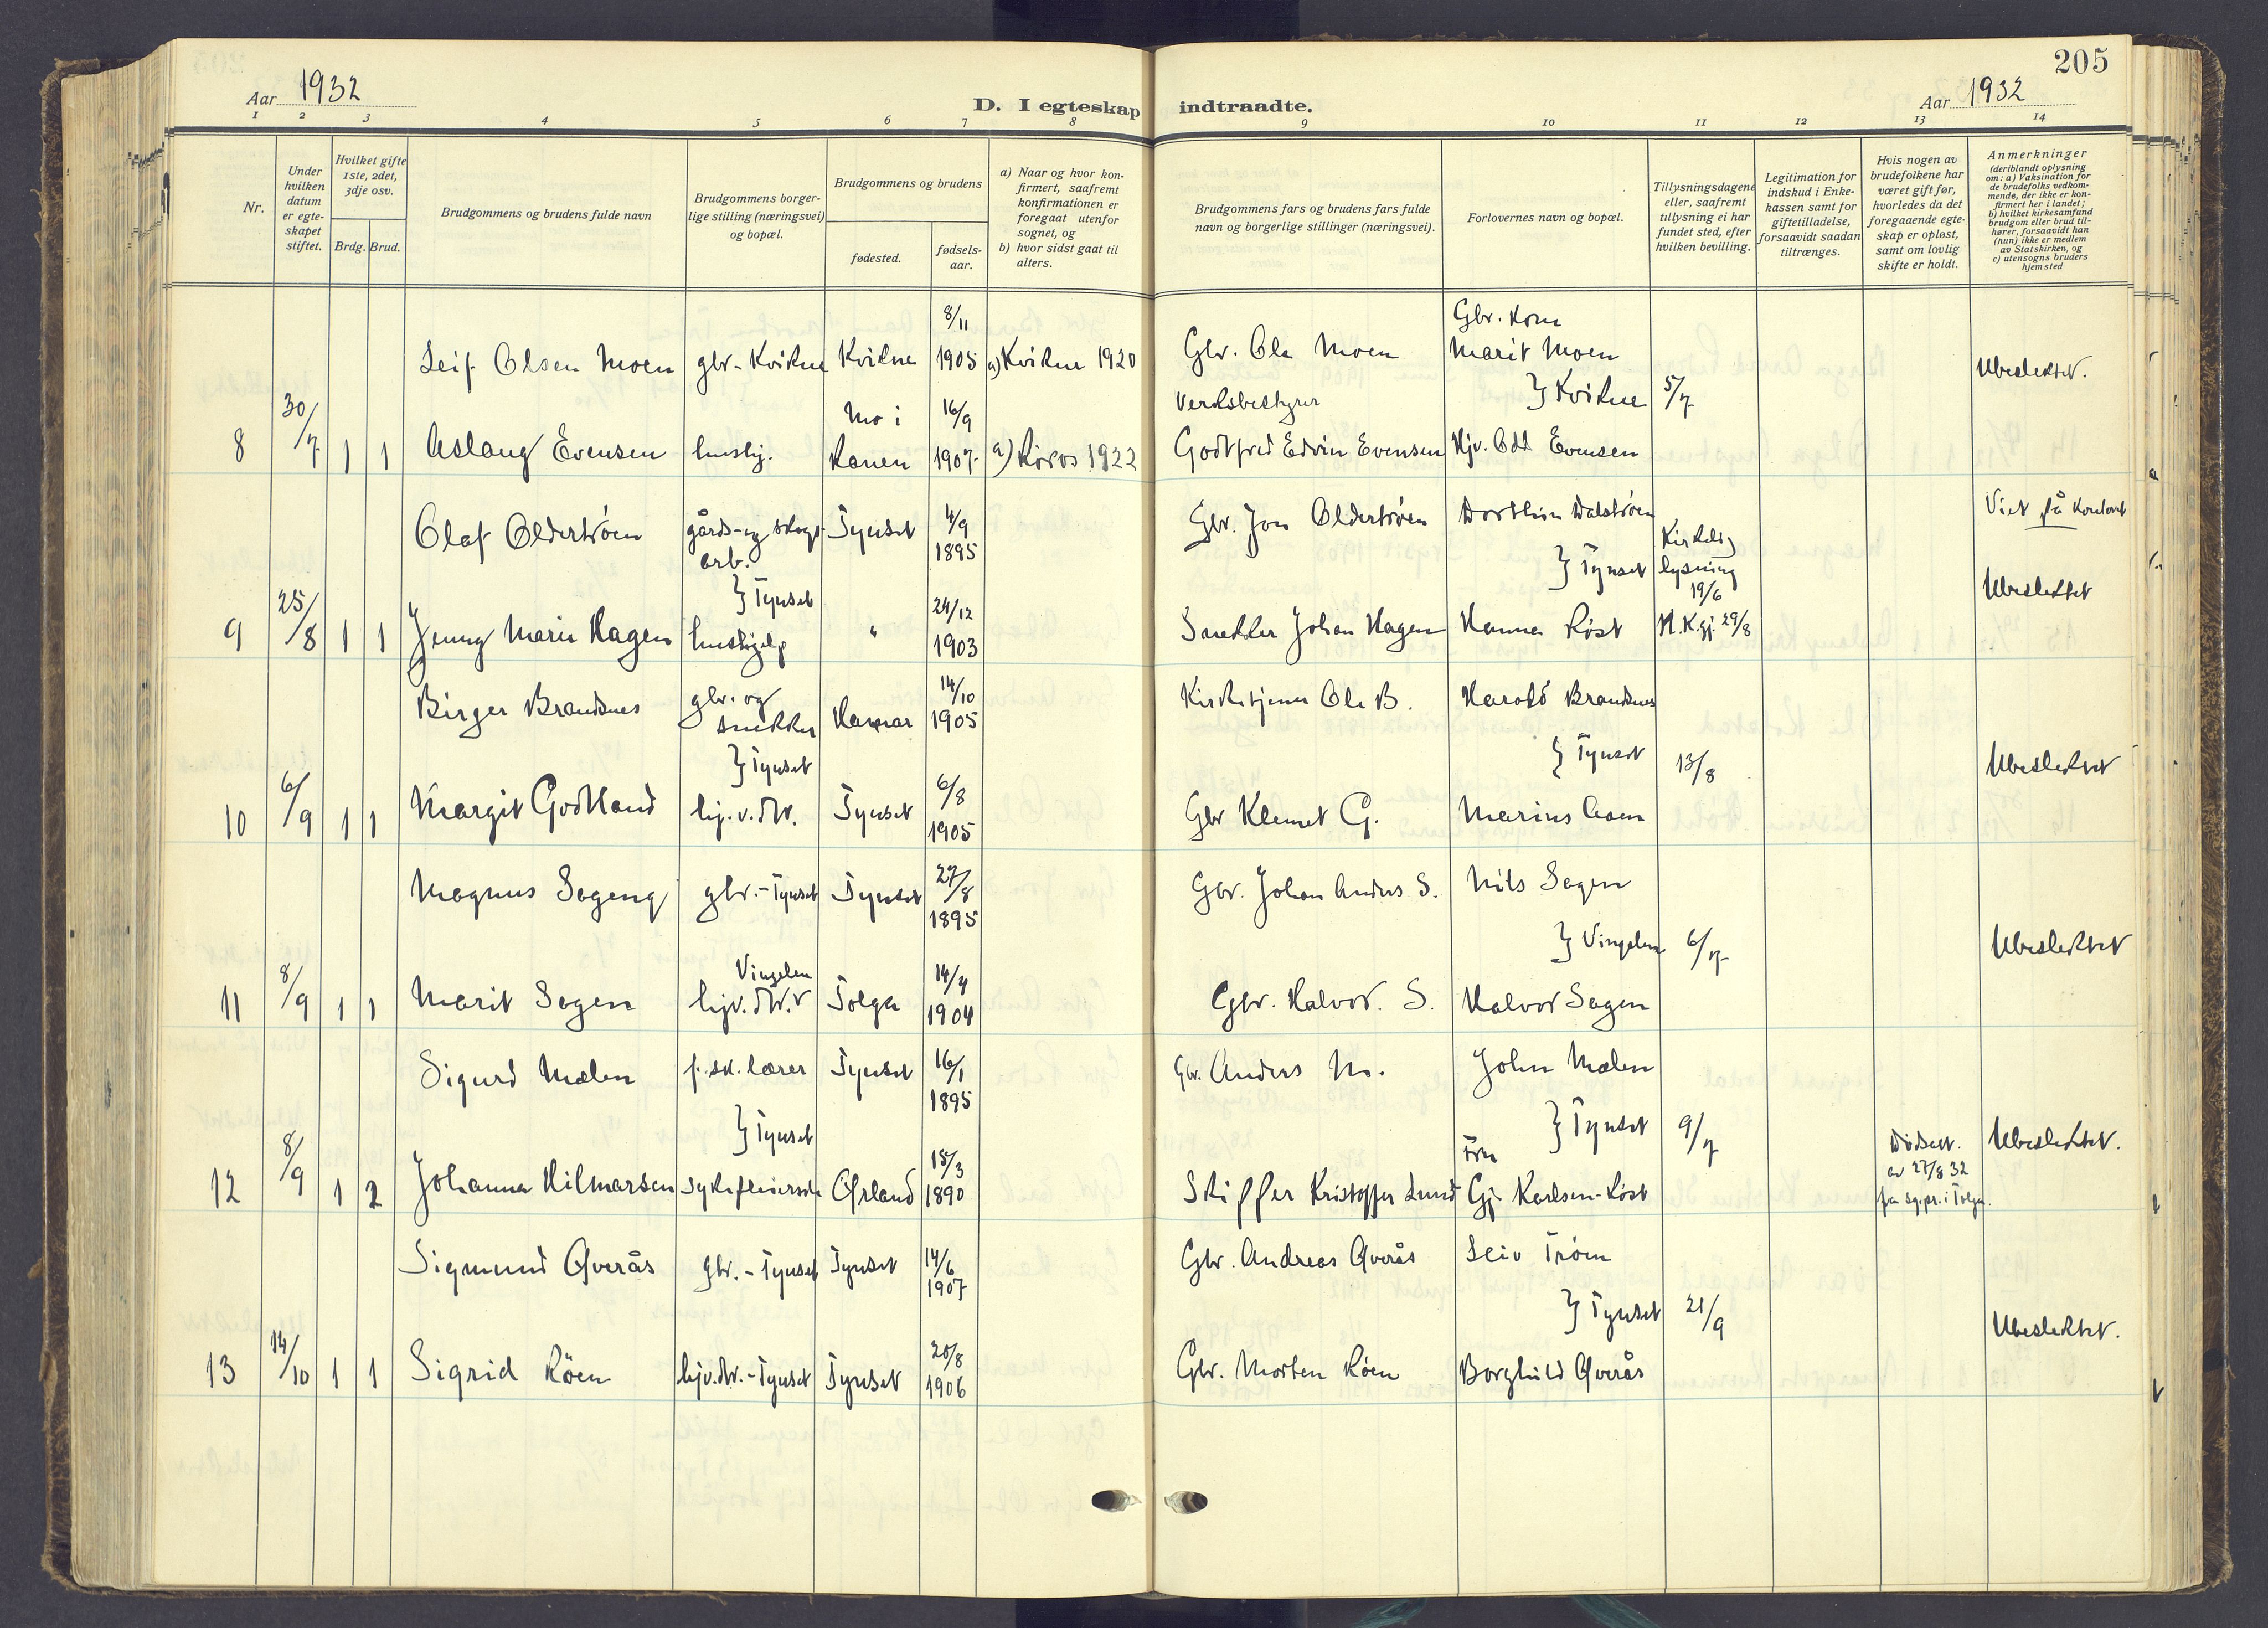 205
Aar 1932
D. I egteskap indtraadte.
Aar 1932
1 2 3 4 5 6 7 8 9 10 11 12 13 14
Nr.
Under hvilken datum er egteskapet stiftet.
Hvilket gifte 1ste, 2det, 3dje osv.
Brdg. Brud.
Brudgommens og brudens fulde navn
Brudgommens borgerlige stilling (næringsvei) og bopæl.
Brudgommens og brudens
fødested.
fødselsaar.
a) Naar og hvor konfirmert, saafremt konfirmationen er foregaat utenfor sognet, og
b) hvor sidst gaat til alters.
Brudgommens fars og brudens fars fulde navn og borgerlige stillinger (næringsvei).
Forlovernes navn og bopæl.
Tillysningsdagene eller, saafremt tillysning ei har fundet sted, efter hvilken bevilling.
Legitimation for indskud i Enkekassen samt for giftetilladelse, forsaavidt saadan tiltrænges.
Hvis nogen av brudefolkene har været gift før, hvorledes da det foregaaende egteskap er opløst, samt om lovlig skifte er holdt.
Anmerkninger
(deriblandt oplysning om: a) Vaksination for de brudefolks vedkommende, der ikke er konfirmert her i landet;
b) hvilket kirkesamfund brudgom eller brud tilhører, forsaavidt han (hun) ikke er medlem av Statskirken, og
c) utensogns bruders hjemsted
8/11
Gbr. kone
Leif Olsen Moen gbr-Kvikne Kvikne 1905 a) Kvikne 1920 Gbr. Ola Moen Marit Moen Ubeslektet.
30/7 Mo i 16/9 Verksbestyrer } Kvikne 5/7
8 1 1 Aslaug Evensen hushj. Ranen 1907 a) Røros 1922 Godtfred Edvin Evensen Hjv. Odd Evensen
Olaf Oldertrøen gårds-og skogs- Tynset 4/9 Gbr. Jon Oldertrøen Dorthin Dalstrøen Viet på kontoret
arb. 1895 Kirkelig
} Tynset } Tynset lysning
25/8 24/12 19/6 Ubeslektet
9 1 1 Jenny Marie Hagen hushjelp " 1903 Snekker Johan Hagen Hanna Røst H.K.gj. 29/8
Birger Brandsnes gbr. og 14/10 Kirketjener Ole B. Harald Brandsnes
snekker Hamar 1905
} Tynset } Tynset 13/8 Ubeslektet
6/9 6/8
10 1 1 Margit Godtland hj.v. Tynset 1905 Gbr Klemet G. Marius Aaen
Magnus Sageng gbr.-Tynset Tynset 27/8 1895 Gbr. Johan Anders S. Nils Sagen
} Vingelen 6/7 Ubeslektet
8/9 Vingelen 14/4
11 1 1 Marit Sagen Tolga 1904 Gbr. Halvor. S. Halvor Sagen
Sigurd Mælen f.sk. lærer Tynset 16/1 1895 Gbr. Anders M. John Mælen
} Tynset } Tynset 9/7 Ubeslektet.
8/9 15/3 Fru Dødsatt.
12 1 2 Johanna Hilmarsen Ørland 1890 Skipper Kristoffer Lund Gj. Karlsen-Røst av 27/8 32
fra sg.pr. i Tolga.
Sigmund Øverås gbr.-Tynset Tynset 14/6 1907 Gbr. Andreas Øverås Leiv Trøen
} Tynset 21/9 Ubeslektet.
14/10 20/8
13 1 1 Sigrid Røen -Tynset Tynset 1906 Gbr. Morten Røen Borghild Øverås